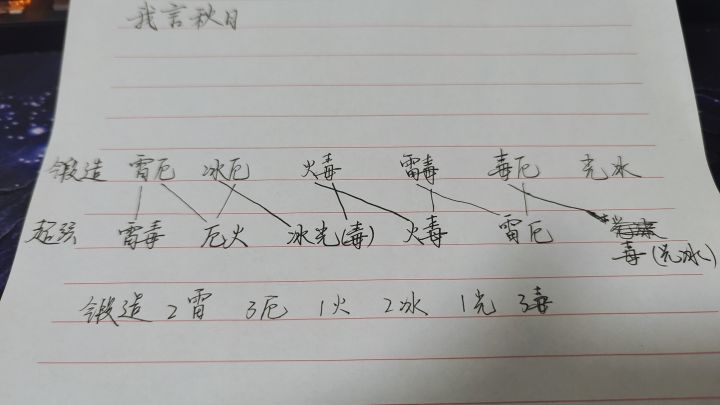 我言秋日
锻造 雷厄 冰厄 火毒 雷毒 毒厄 光冰
超弦 雷毒 厄火 冰光(毒) 火毒 雷厄
毒(光冰)
锻造 2雷 3厄 1火 2冰 1光 3毒